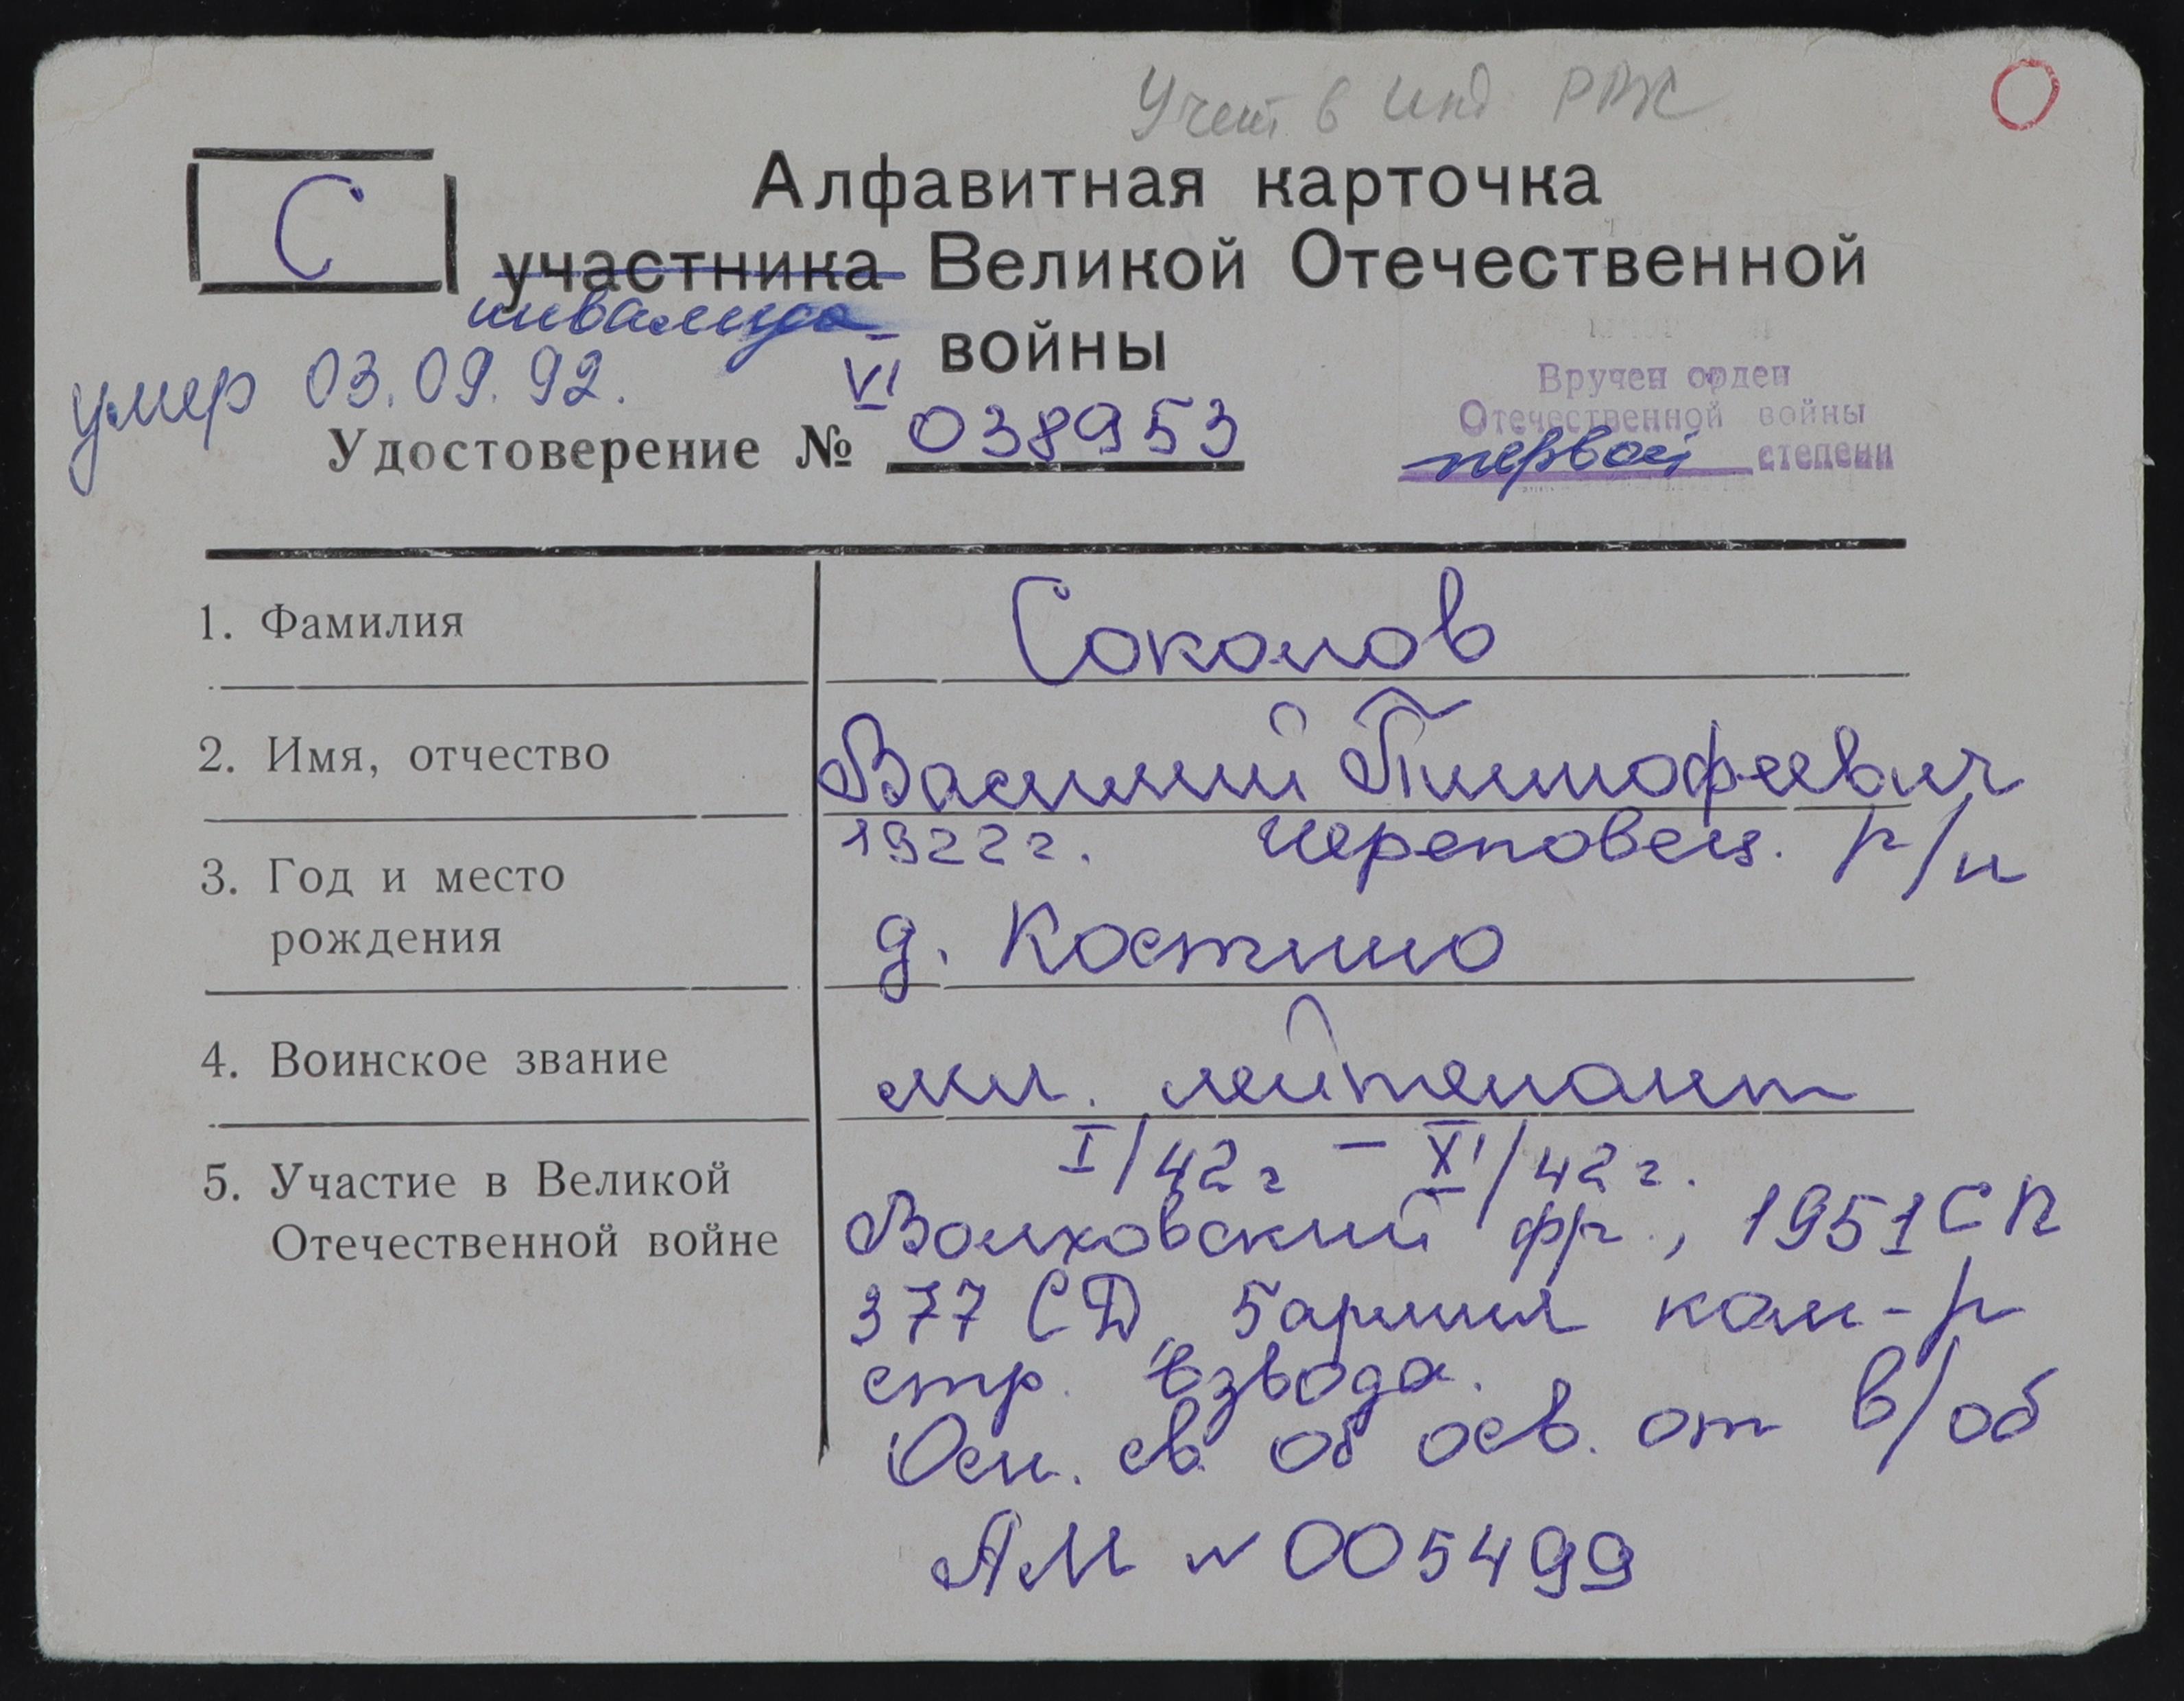 Учет в инд РВК
Алфавитная карточка
С
участника Великой Отечественной
инвалида
войны
умер 03.09.92.
Вручен орден
Отечественной войны
первой степени
Удостоверение № VI 038953
1. Фамилия Соколов
2. Имя, отчество Василий Тимофеевич
3. Год и место 1922г. Череповец. р/н
рождения д. Костино
4. Воинское звание мл. лейтенант
5. Участие в Великой I/42г – XI/42г.
Отечественной войне Волховский фр., 1951 СП
377 СД, 5 армия ком-р
стр. взвода.
Осн. св. об осв. от в/об
АМ № 005499